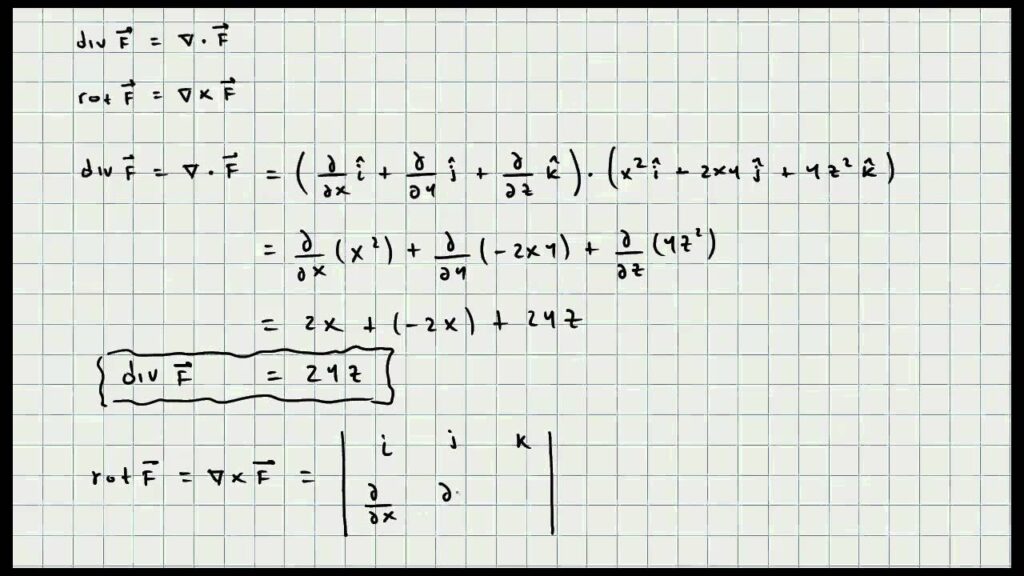 div F⃗ = ∇ · F⃗
rot F⃗ = ∇ × F⃗
div F⃗ = ∇ · F⃗ = (∂/∂x î + ∂/∂y ĵ + ∂/∂z k̂) · (x² î + 2xy ĵ + yz² k̂)
= ∂/∂x (x²) + ∂/∂y (-2xy) + ∂/∂z (yz²)
= 2x + (-2x) + 2yz
div F⃗ = 2yz
rot F⃗ = ∇ × F⃗ = | i j k |
∂/∂x ∂